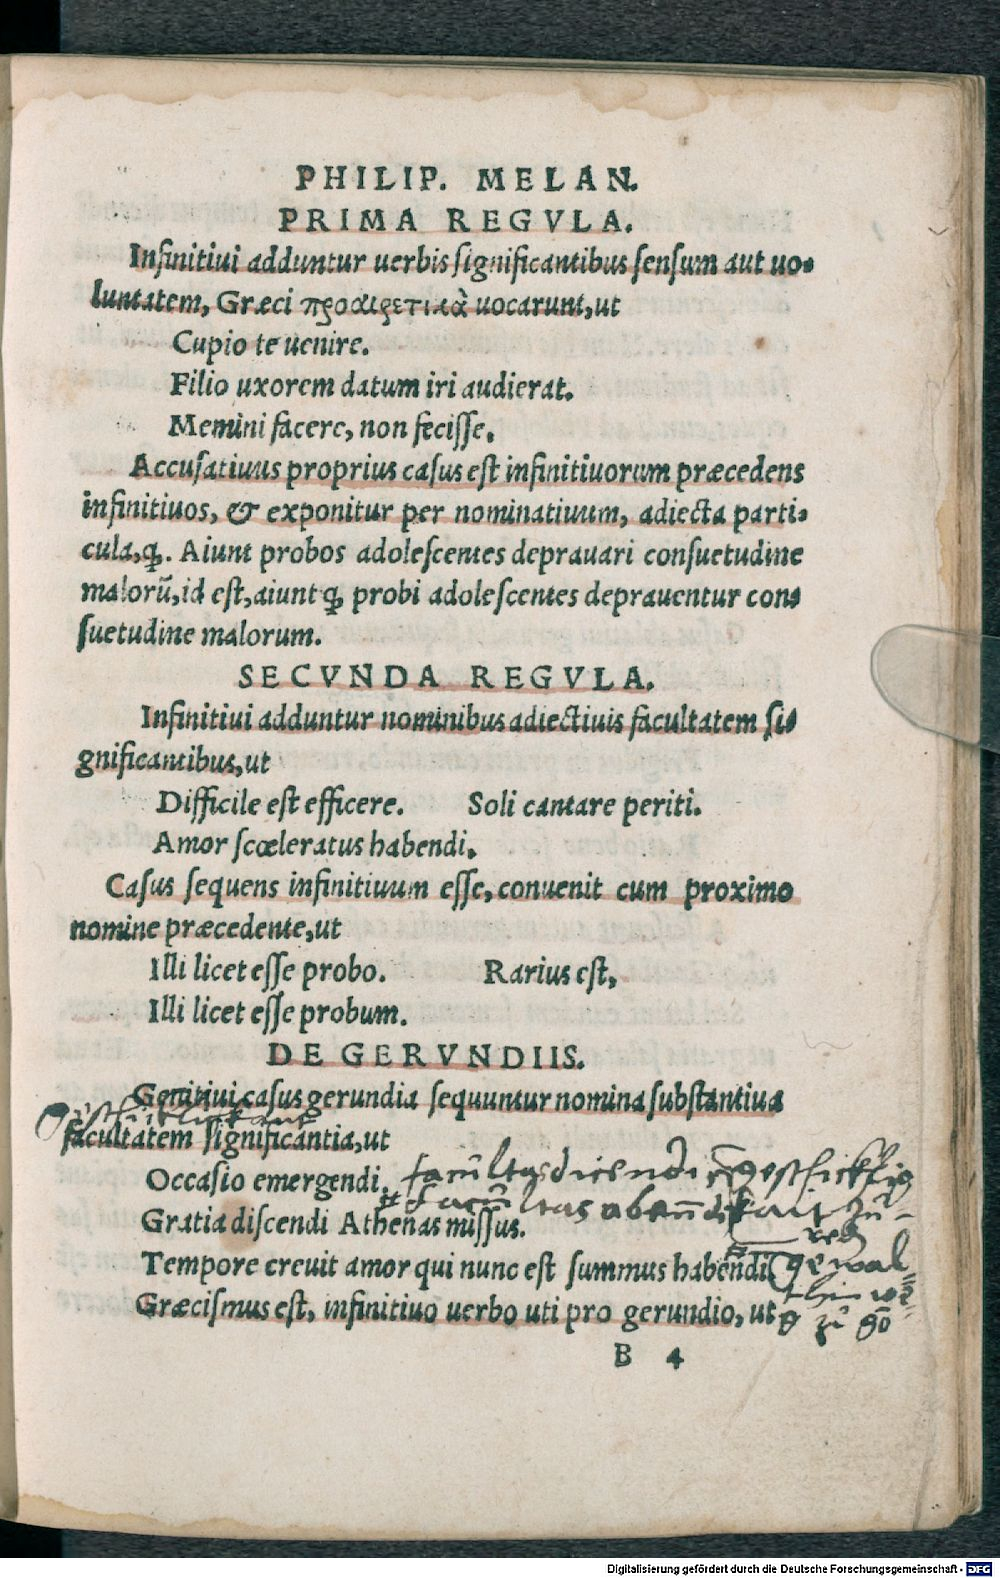 PHILIP. MELAN.
PRIMA REGVLA.
Infinitiui adduntur uerbis significantibus sensum aut uo-
luntatem, Græci προαιρετικὰ uocarunt, ut
Cupio te uenire.
Filio uxorem datum iri audierat.
Memini facere, non fecisse.
Accusatiuus proprius casus est infinitiuorum præcedens
infinitiuos, & exponitur per nominatiuum, adiecta parti-
cula, ꝙ. Aiunt probos adolescentes deprauari consuetudine
malorũ, id est, aiunt ꝙ probi adolescentes deprauentur con-
suetudine malorum.
SECVNDA REGVLA.
Infinitiui adduntur nominibus adiectiuis facultatem si-
gnificantibus, ut
Difficile est efficere. Soli cantare periti.
Amor scœleratus habendi.
Casus sequens infinitiuum esse, conuenit cum proximo
nomine præcedente, ut
Illi licet esse probo. Rarius est,
Illi licet esse probum.
DE GERVNDIIS.
Genitiui casus gerundia sequuntur nomina substantiua
facultatem significantia, ut
Occasio emergendi. facultas dicendi geschickkig
Gratia discendi Athenas missus. facultas zů
red
Tempore creuit amor qui nunc est summus habendi gewal
Græcismus est, infinitiuo uerbo uti pro gerundio, ut
zů gō
B 4
Digitalisierung gefördert durch die Deutsche Forschungsgemeinschaft - DFG